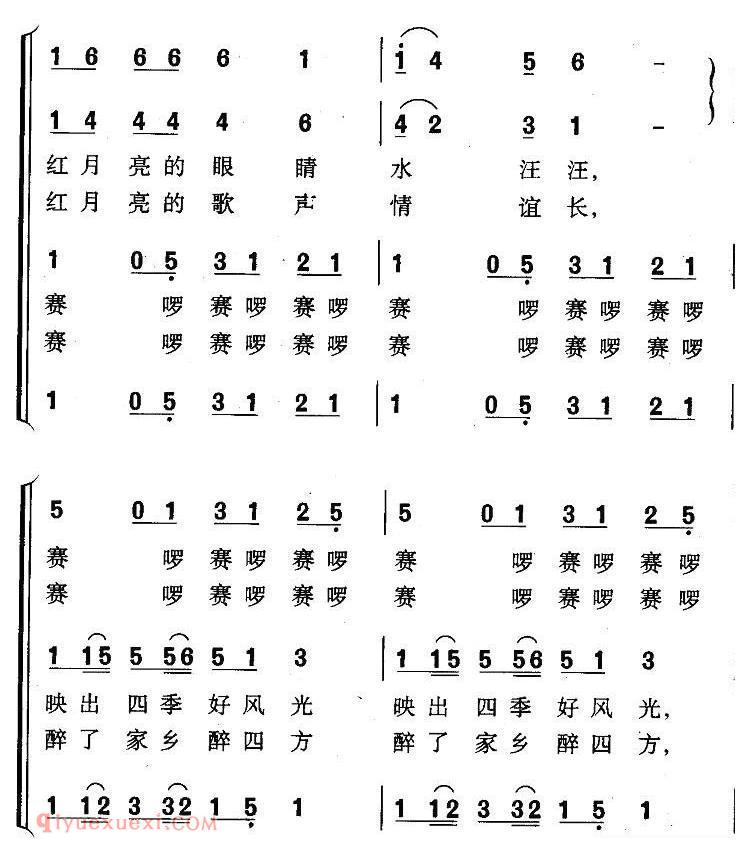 1 6 6 6 6 1 | 1 4 5 6 –
1 4 4 4 4 6 | 4 2 3 1 –
红月 亮的 眼 睛 水 汪 汪,
红月 亮的 歌 声 情 谊 长,
1 0 5 3 1 2 1 | 1 0 5 3 1 2 1 |
赛 啰 赛啰 赛啰 赛 啰 赛啰 赛啰
赛 啰 赛啰 赛啰 赛 啰 赛啰 赛啰
1 0 5 3 1 2 1 | 1 0 5 3 1 2 1 |
5 0 1 3 1 2 5 | 5 0 1 3 1 2 5
赛 啰 赛啰 赛啰 赛 啰 赛啰 赛啰
赛 啰 赛啰 赛啰 赛 啰 赛啰 赛啰
1 15 5 56 5 1 3 | 1 15 5 56 5 1 3
映出 四季 好风 光 映出 四季 好风 光,
醉了 家乡 醉四 方 醉了 家乡 醉四 方,
1 12 3 32 1 5 1 | 1 12 3 32 1 5 1
qiyuexuexi.com